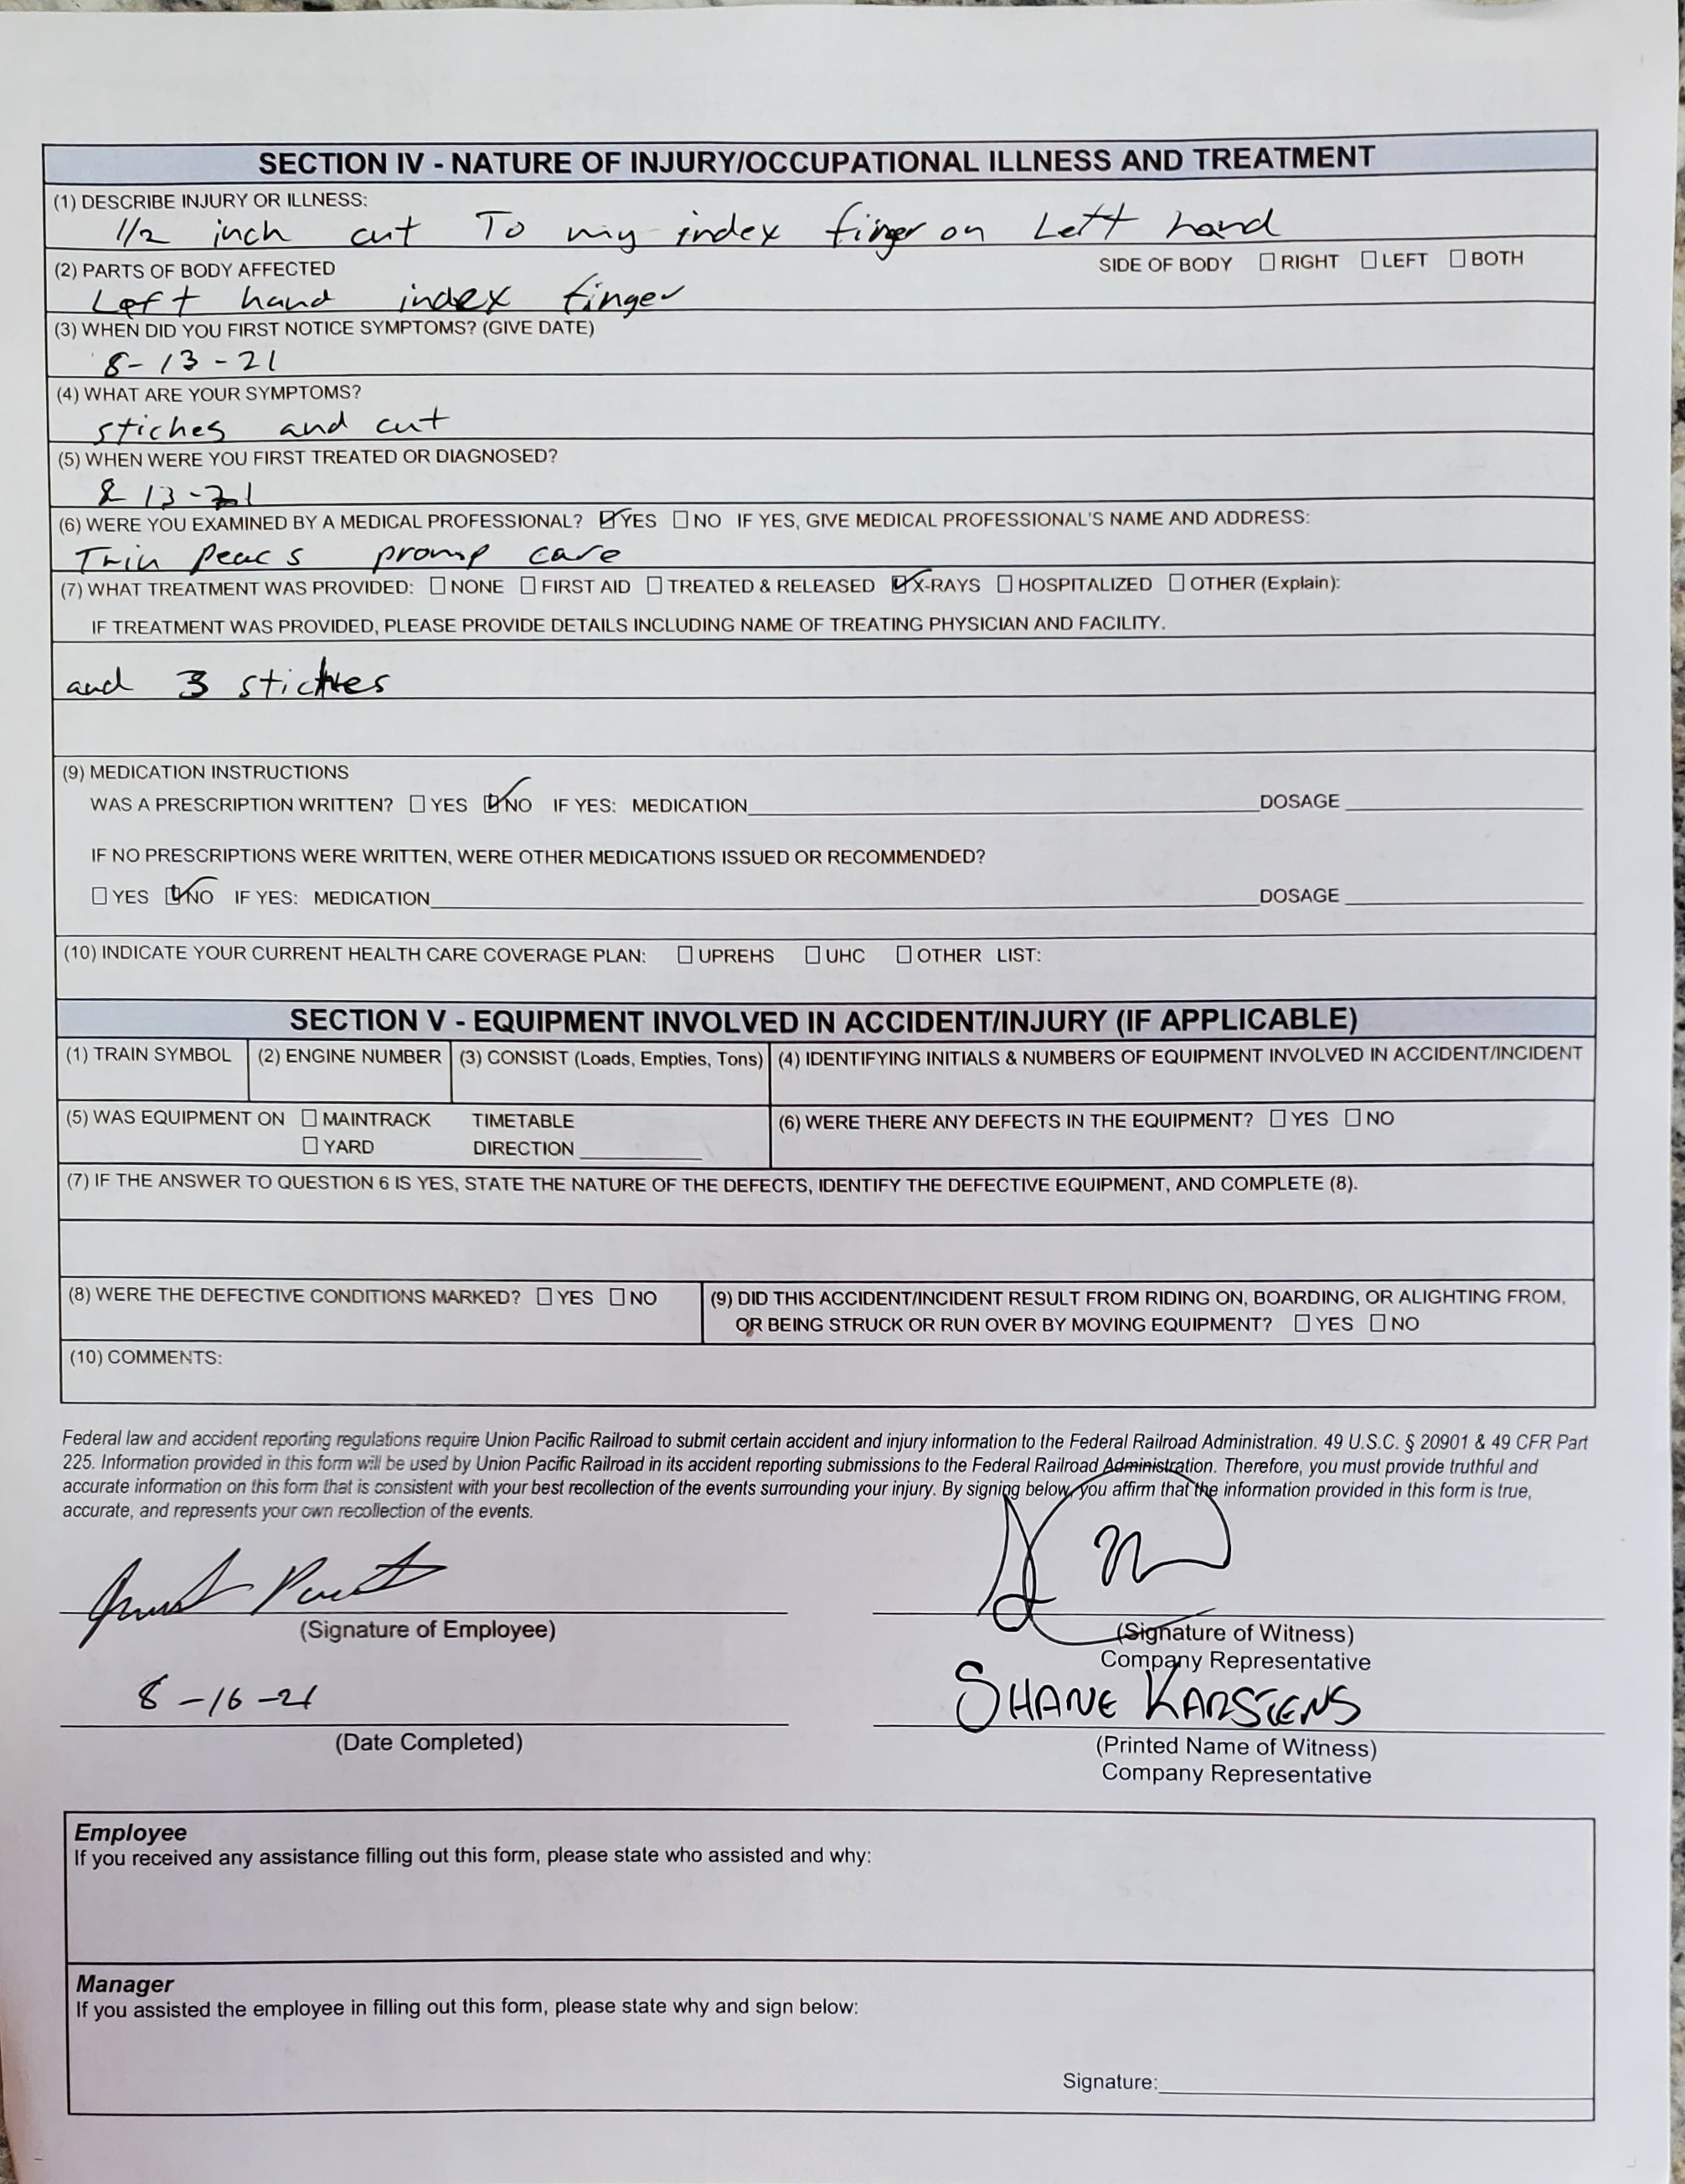 SECTION IV - NATURE OF INJURY/OCCUPATIONAL ILLNESS AND TREATMENT
(1) DESCRIBE INJURY OR ILLNESS:
1/2 inch cut To my index finger on Left hand
(2) PARTS OF BODY AFFECTED SIDE OF BODY ☐ RIGHT ☐ LEFT ☐ BOTH
Left hand index finger
(3) WHEN DID YOU FIRST NOTICE SYMPTOMS? (GIVE DATE)
8-13-21
(4) WHAT ARE YOUR SYMPTOMS?
stiches and cut
(5) WHEN WERE YOU FIRST TREATED OR DIAGNOSED?
8 13-21
(6) WERE YOU EXAMINED BY A MEDICAL PROFESSIONAL? ☑ YES ☐ NO IF YES, GIVE MEDICAL PROFESSIONAL'S NAME AND ADDRESS:
care
(7) WHAT TREATMENT WAS PROVIDED: ☐ NONE ☐ FIRST AID ☐ TREATED & RELEASED ☑ X-RAYS ☐ HOSPITALIZED ☐ OTHER (Explain):
IF TREATMENT WAS PROVIDED, PLEASE PROVIDE DETAILS INCLUDING NAME OF TREATING PHYSICIAN AND FACILITY.
and 3 stiches
(9) MEDICATION INSTRUCTIONS
WAS A PRESCRIPTION WRITTEN? ☐ YES ☑ NO IF YES: MEDICATION DOSAGE
IF NO PRESCRIPTIONS WERE WRITTEN, WERE OTHER MEDICATIONS ISSUED OR RECOMMENDED?
☐ YES ☑ NO IF YES: MEDICATION DOSAGE
(10) INDICATE YOUR CURRENT HEALTH CARE COVERAGE PLAN: ☐ UPREHS ☐ UHC ☐ OTHER LIST:
SECTION V - EQUIPMENT INVOLVED IN ACCIDENT/INJURY (IF APPLICABLE)
(1) TRAIN SYMBOL (2) ENGINE NUMBER (3) CONSIST (Loads, Empties, Tons) (4) IDENTIFYING INITIALS & NUMBERS OF EQUIPMENT INVOLVED IN ACCIDENT/INCIDENT
(5) WAS EQUIPMENT ON ☐ MAINTRACK TIMETABLE (6) WERE THERE ANY DEFECTS IN THE EQUIPMENT? ☐ YES ☐ NO
☐ YARD DIRECTION
(7) IF THE ANSWER TO QUESTION 6 IS YES, STATE THE NATURE OF THE DEFECTS, IDENTIFY THE DEFECTIVE EQUIPMENT, AND COMPLETE (8).
(8) WERE THE DEFECTIVE CONDITIONS MARKED? ☐ YES ☐ NO (9) DID THIS ACCIDENT/INCIDENT RESULT FROM RIDING ON, BOARDING, OR ALIGHTING FROM,
OR BEING STRUCK OR RUN OVER BY MOVING EQUIPMENT? ☐ YES ☐ NO
(10) COMMENTS:
Federal law and accident reporting regulations require Union Pacific Railroad to submit certain accident and injury information to the Federal Railroad Administration. 49 U.S.C. § 20901 & 49 CFR Part
225. Information provided in this form will be used by Union Pacific Railroad in its accident reporting submissions to the Federal Railroad Administration. Therefore, you must provide truthful and
accurate information on this form that is consistent with your best recollection of the events surrounding your injury. By signing below, you affirm that the information provided in this form is true,
accurate, and represents your own recollection of the events.
(Signature of Employee) (Signature of Witness)
Company Representative
8-16-21 SHANE KARSTENS
(Date Completed) (Printed Name of Witness)
Company Representative
Employee
If you received any assistance filling out this form, please state who assisted and why:
Manager
If you assisted the employee in filling out this form, please state why and sign below:
Signature: